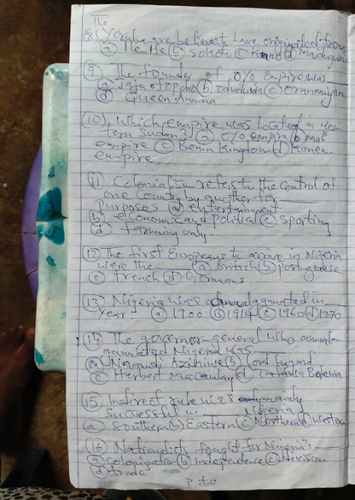 The
(8) Yoruba are believe to have originated from
a Ile Ife (b) Sokoto (c) Kano (d) Maiduguri
(9) The founder of Oyo Empire was
a Jaja of Opobo (b) Oduduwa (c) Oranmiyan
(d) Queen Amina
(10) Which empire was located in Wes
tern Sudan? (a) Oyo empire (b) mali
empire (c) Benin Kingdom (d) Kanem
empire
(11) Colonialism refers to the control of
one country by another for
purposes (a) entertainment
(b) economic and political (c) Sporting
(d) farming only
(12) The first Europeans to arrive in Nigeria
were the (a) British (b) portuguese
(c) french (d) Germans
(13) Nigeria was amalgamated in
year (a) 1900 (b) 1914 (c) 1960 (d) 1970
(14) The governor-general who amalg-
gamated Nigeria was
(a) Nnamdi Azikiwe (b) Lord Lugard
(c) Herbert Macaulay (d)
(15) Indirect rule was mainly
successful in Nigeria
(a) Southern (b) Eastern (c) Northern (d) Western
(16) Nationalists fought for Nigeria's
(a) Colonization (b) Independence (c) Division
(d) trade
P.T.O